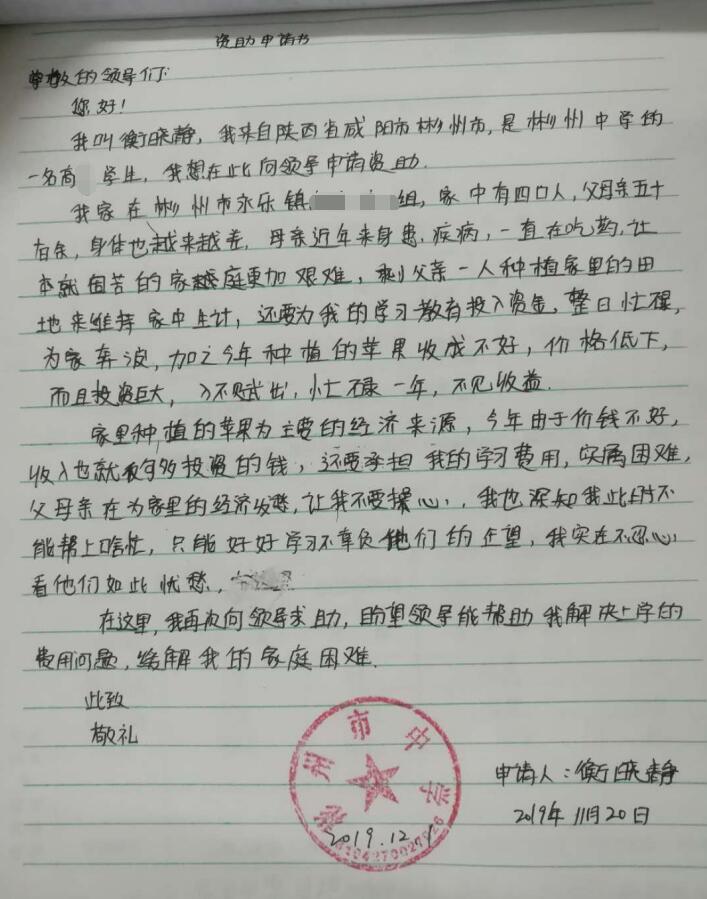 资助申请书
尊敬的领导们:
您好!
我叫衡晓静,我来自陕西省咸阳市彬州市,是彬州中学的
一名高 学生,我想在此向领导申请资助.
我家在彬州市永乐镇 组,家中有四口人,父母亲五十
有余,身体也越来越差,母亲近年来身患疾病,一直在吃药,让
本就困苦的家庭更加艰难,剩父亲一人种植家里的田
地来维持家中生计,还要为我的学习教育投入资金,整日忙碌,
为家奔波,加之今年种植的苹果收成不好,价格低下,
而且投资巨大,入不赋出,忙碌一年,不见收益.
家里种植的苹果为主要的经济来源,今年由于价钱不好,
收入也就够投资的钱,还要承担我的学习费用,实属困难,
父母亲在为家里的经济发愁,让我不要操心,我也深知我此时不
能帮上啥忙,只能好好学习不辜负他们的企望,我实在不忍心
看他们如此忧愁,
在这里,我再次向领导求助,盼望领导能帮助我解决上学的
费用问题,缓解我的家庭困难.
此致
敬礼
申请人:衡晓静
2019年11月20日
彬州市中学
2019.12.